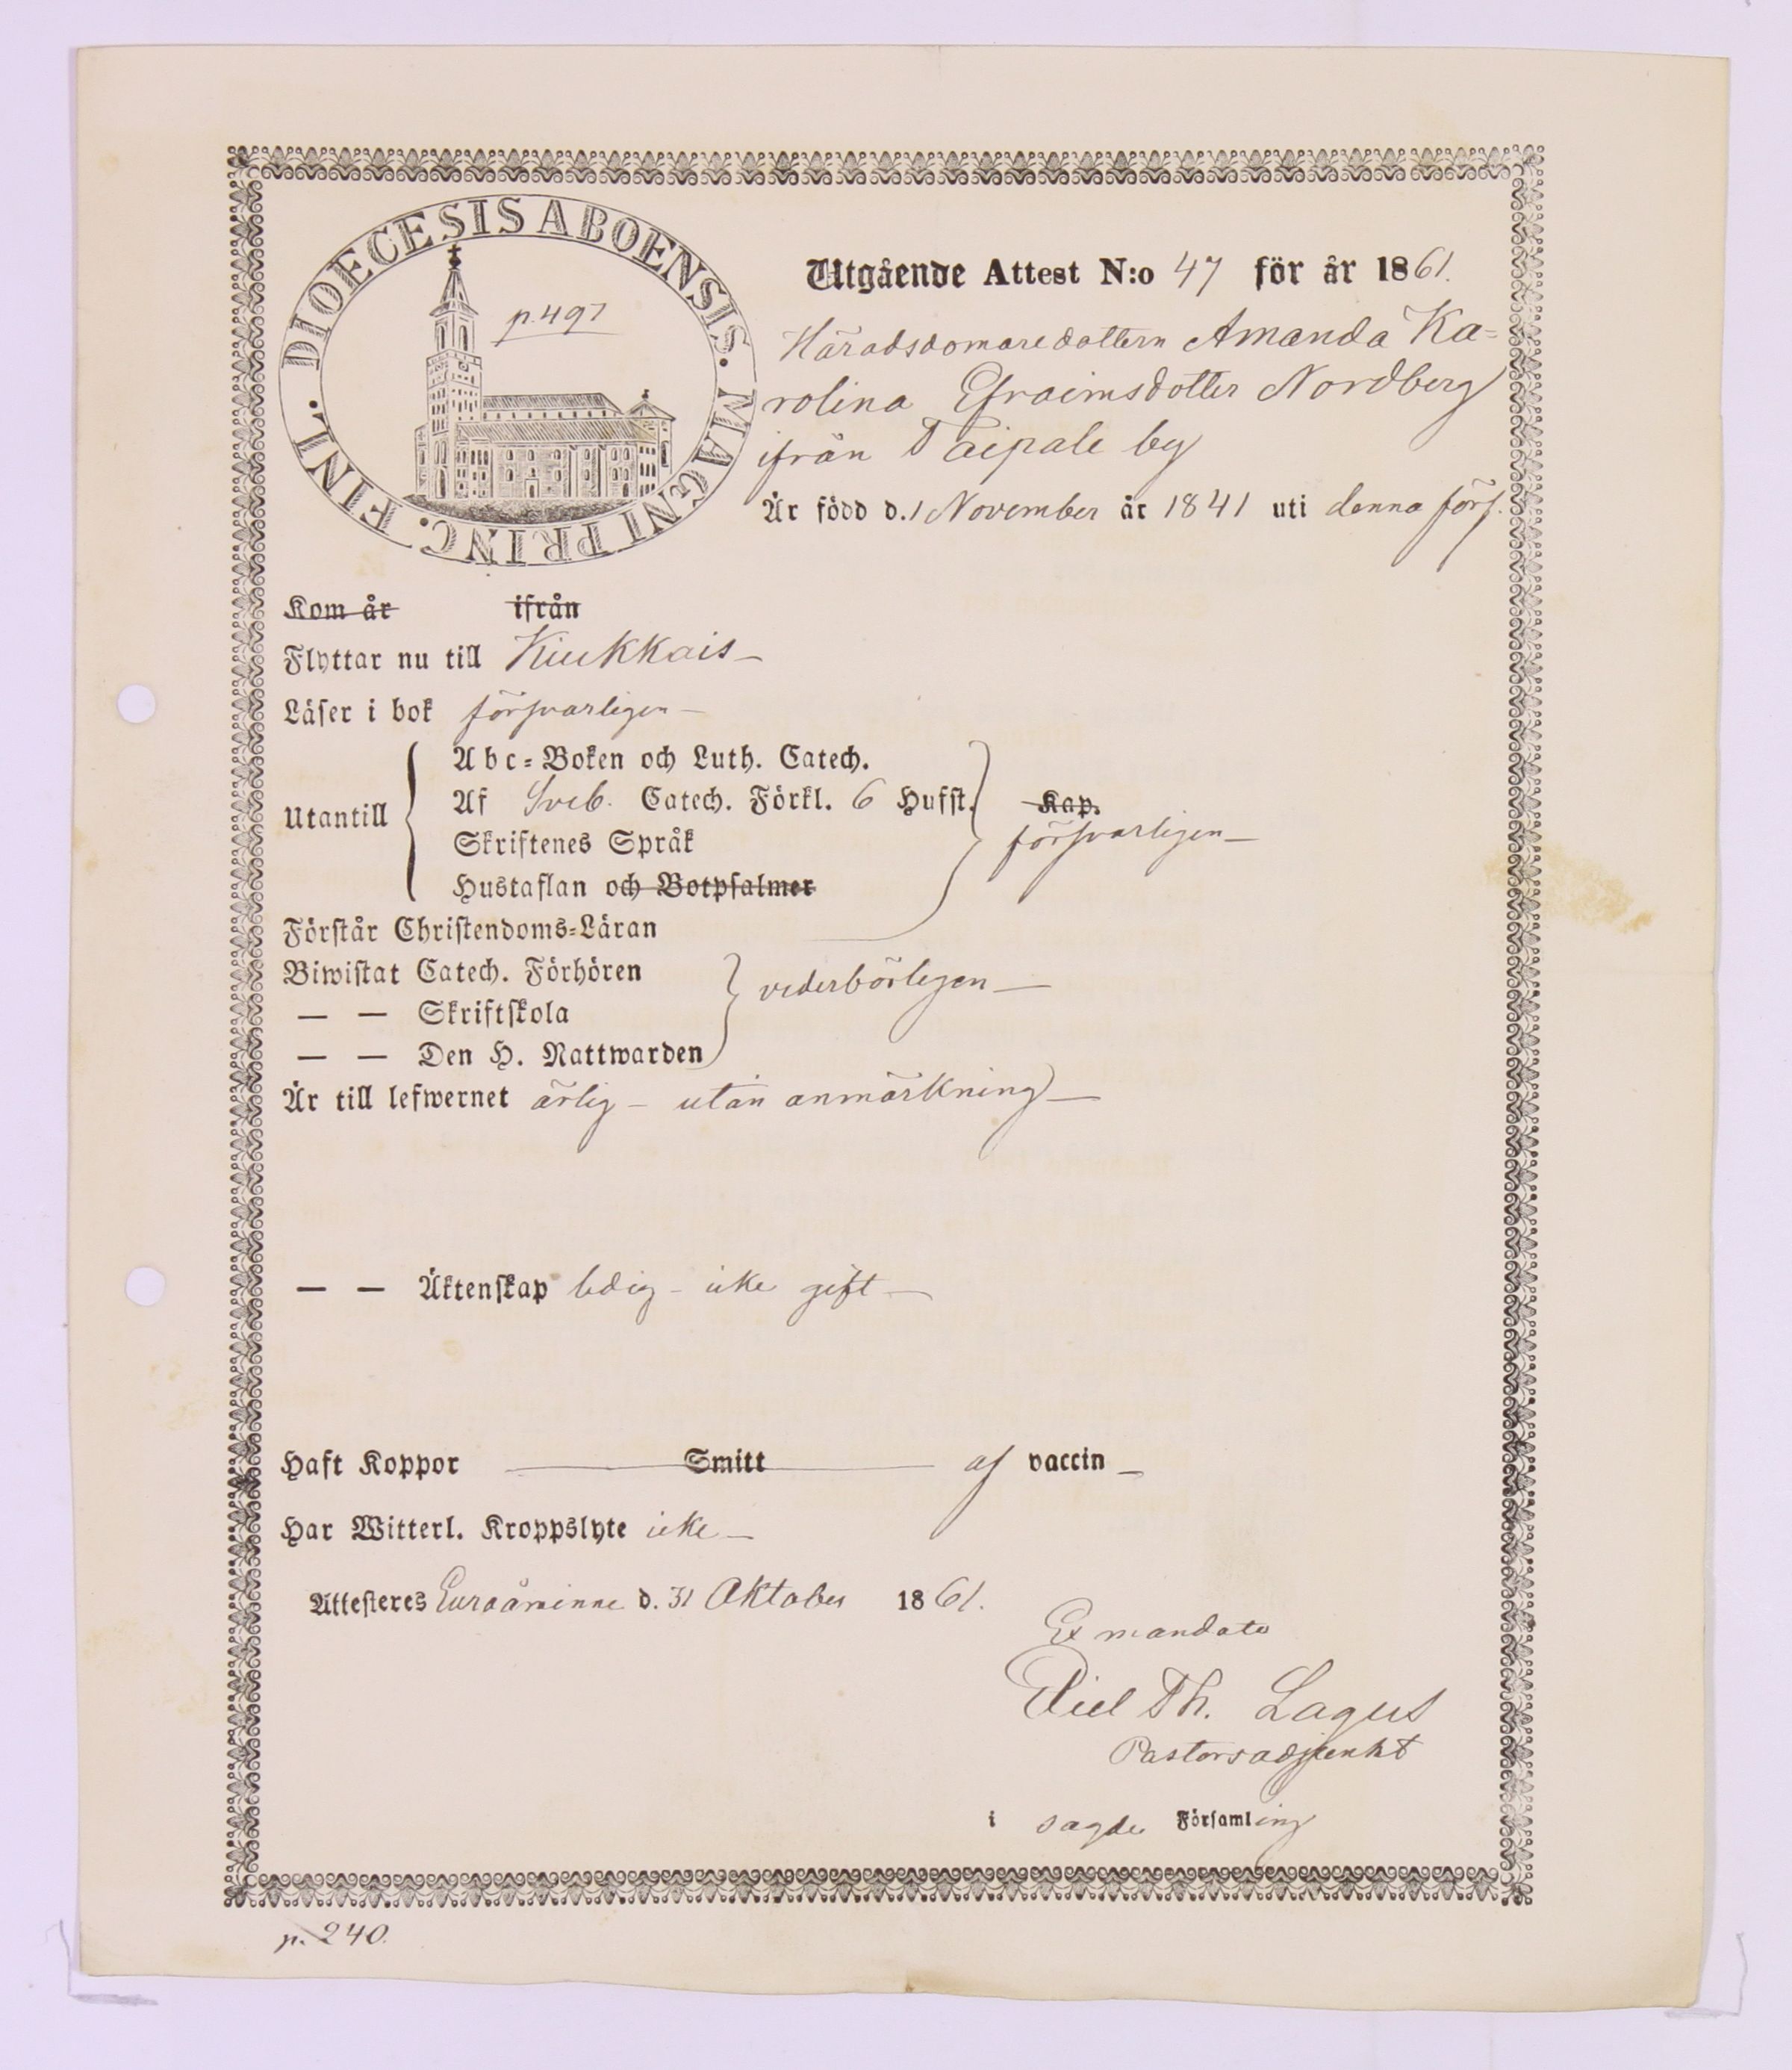 DIOECESIS ABOENSIS. MAGNI PRINC. FINL.
p. 497
Utgående Attest N:o 47 för år 1861.
Häradsdomaredottern Amanda Ka=
rolina Efraimsdotter Nordberg
ifrån Taipale by
Är född d. 1 November år 1841 uti denna förs.
Kom år ifrån
Flyttar nu till Kiukkais –
Läser i bok försvarligen –
Utantill
Abc=Boken och Luth. Catech.
Af Sveb. Catech. Förkl. 6 Hufst. Kap.
försvarligen –
Skriftenes Språk
Hustaflan och Botpsalmer
Förstår Christendoms=Läran
Biwistat Catech. Förhören
vederbörligen –
— — Skriftskola
— — Den H. Nattwarden
Är till lefwernet ärlig – utan anmärkning –
— — Äktenskap ledig – icke gift –
Haft Koppor Smitt af vaccin –
Har Witterl. Kroppslyte icke –
Attesteres Euraåminne d. 31 Oktober 1861.
Ex mandato
Eliel Th. Lagus
Pastorsadjunkt
i sagde Församling
p. 240.